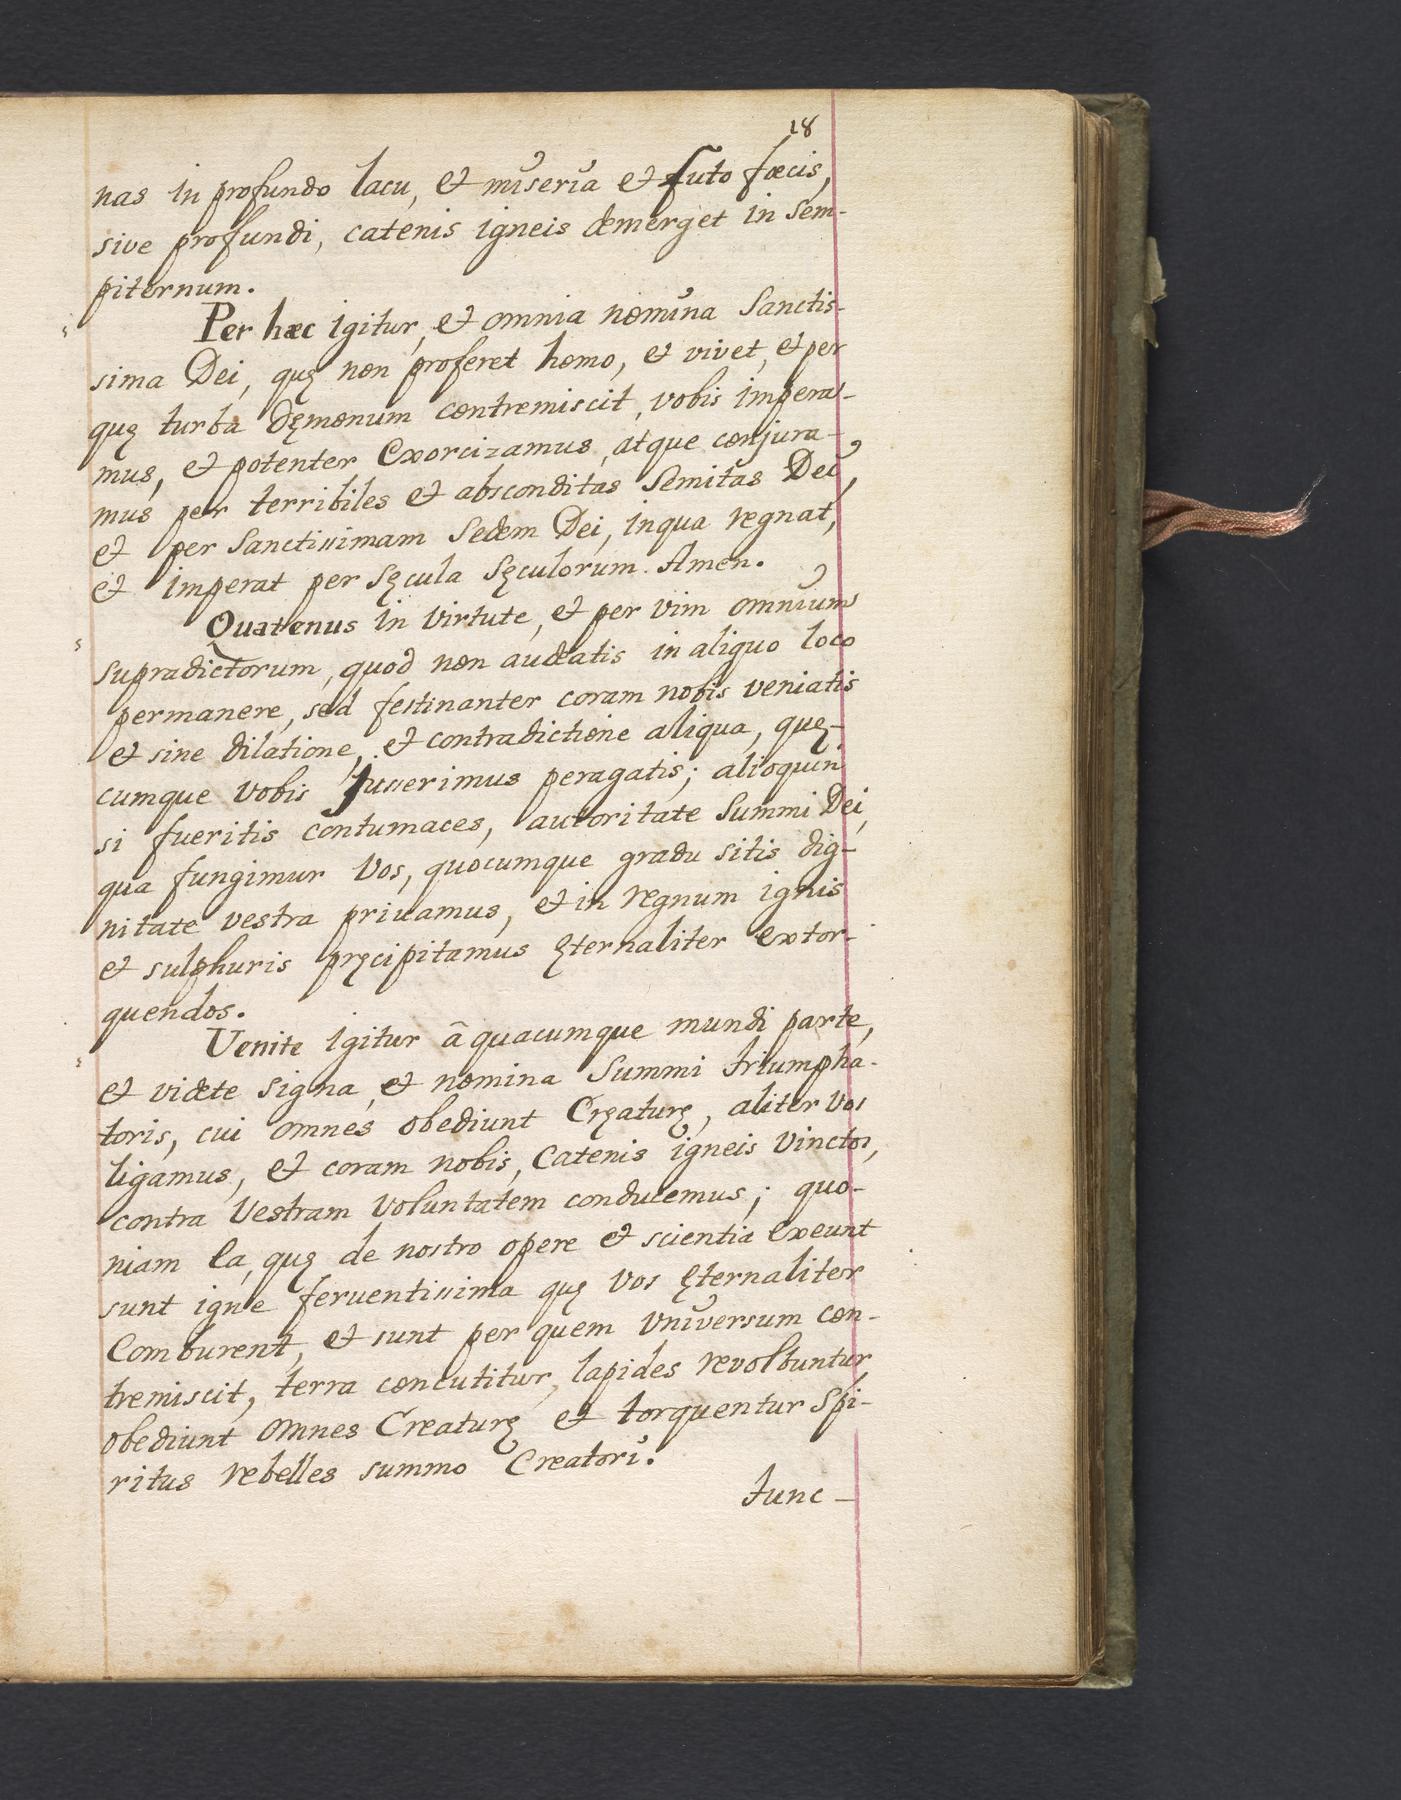 18
nas in profundo lacu, et miseria et luto fœcis,
sive profundi, catenis igneis demerget in sem-
piternum.
Per hæc igitur, et omnia nomina Sanctis-
sima Dei, quę non proferet homo, et vivet, et per
quę turba dęmonum contremiscit, vobis impera-
mus, et potenter Exorcizamus, atque conjura-
mus per terribiles et absconditas Semitas Dei,
et per Sanctissimam Sedem Dei, in qua regnat,
et imperat per sęcula sęculorum. Amen.
Quatenus in virtute, et per vim omnium
supradictorum, quod non audeatis in aliquo loco
permanere, sed festinanter coram nobis veniatis
et sine dilatione, et contradictione aliqua, quę-
cumque vobis Jusserimus peragatis; alioquin
si fueritis contumaces, autoritate Summi Dei,
qua fungimur Vos, quocumque gradu sitis dig-
nitate vestra privamus, et in regnum ignis
et sulphuris pręcipitamus ęternaliter extor-
quendos.
Venite igitur â quacumque mundi parte,
et videte signa, et nomina Summi triumpha-
toris, cui omnes obediunt Cręaturę, aliter Vos
ligamus, et coram nobis, Catenis igneis vinctos,
contra Vestram Voluntatem conducemus; quo-
niam ea, quę de nostro opere et scientia exeunt
sunt igne ferventissima quę vos ęternaliter
Comburent, et sunt per quem Vniversum con-
tremiscit, terra concutitur, lapides revolbuntur
obediunt omnes Creaturę et torquentur Spi-
ritus rebelles summo Creatori.
tunc -